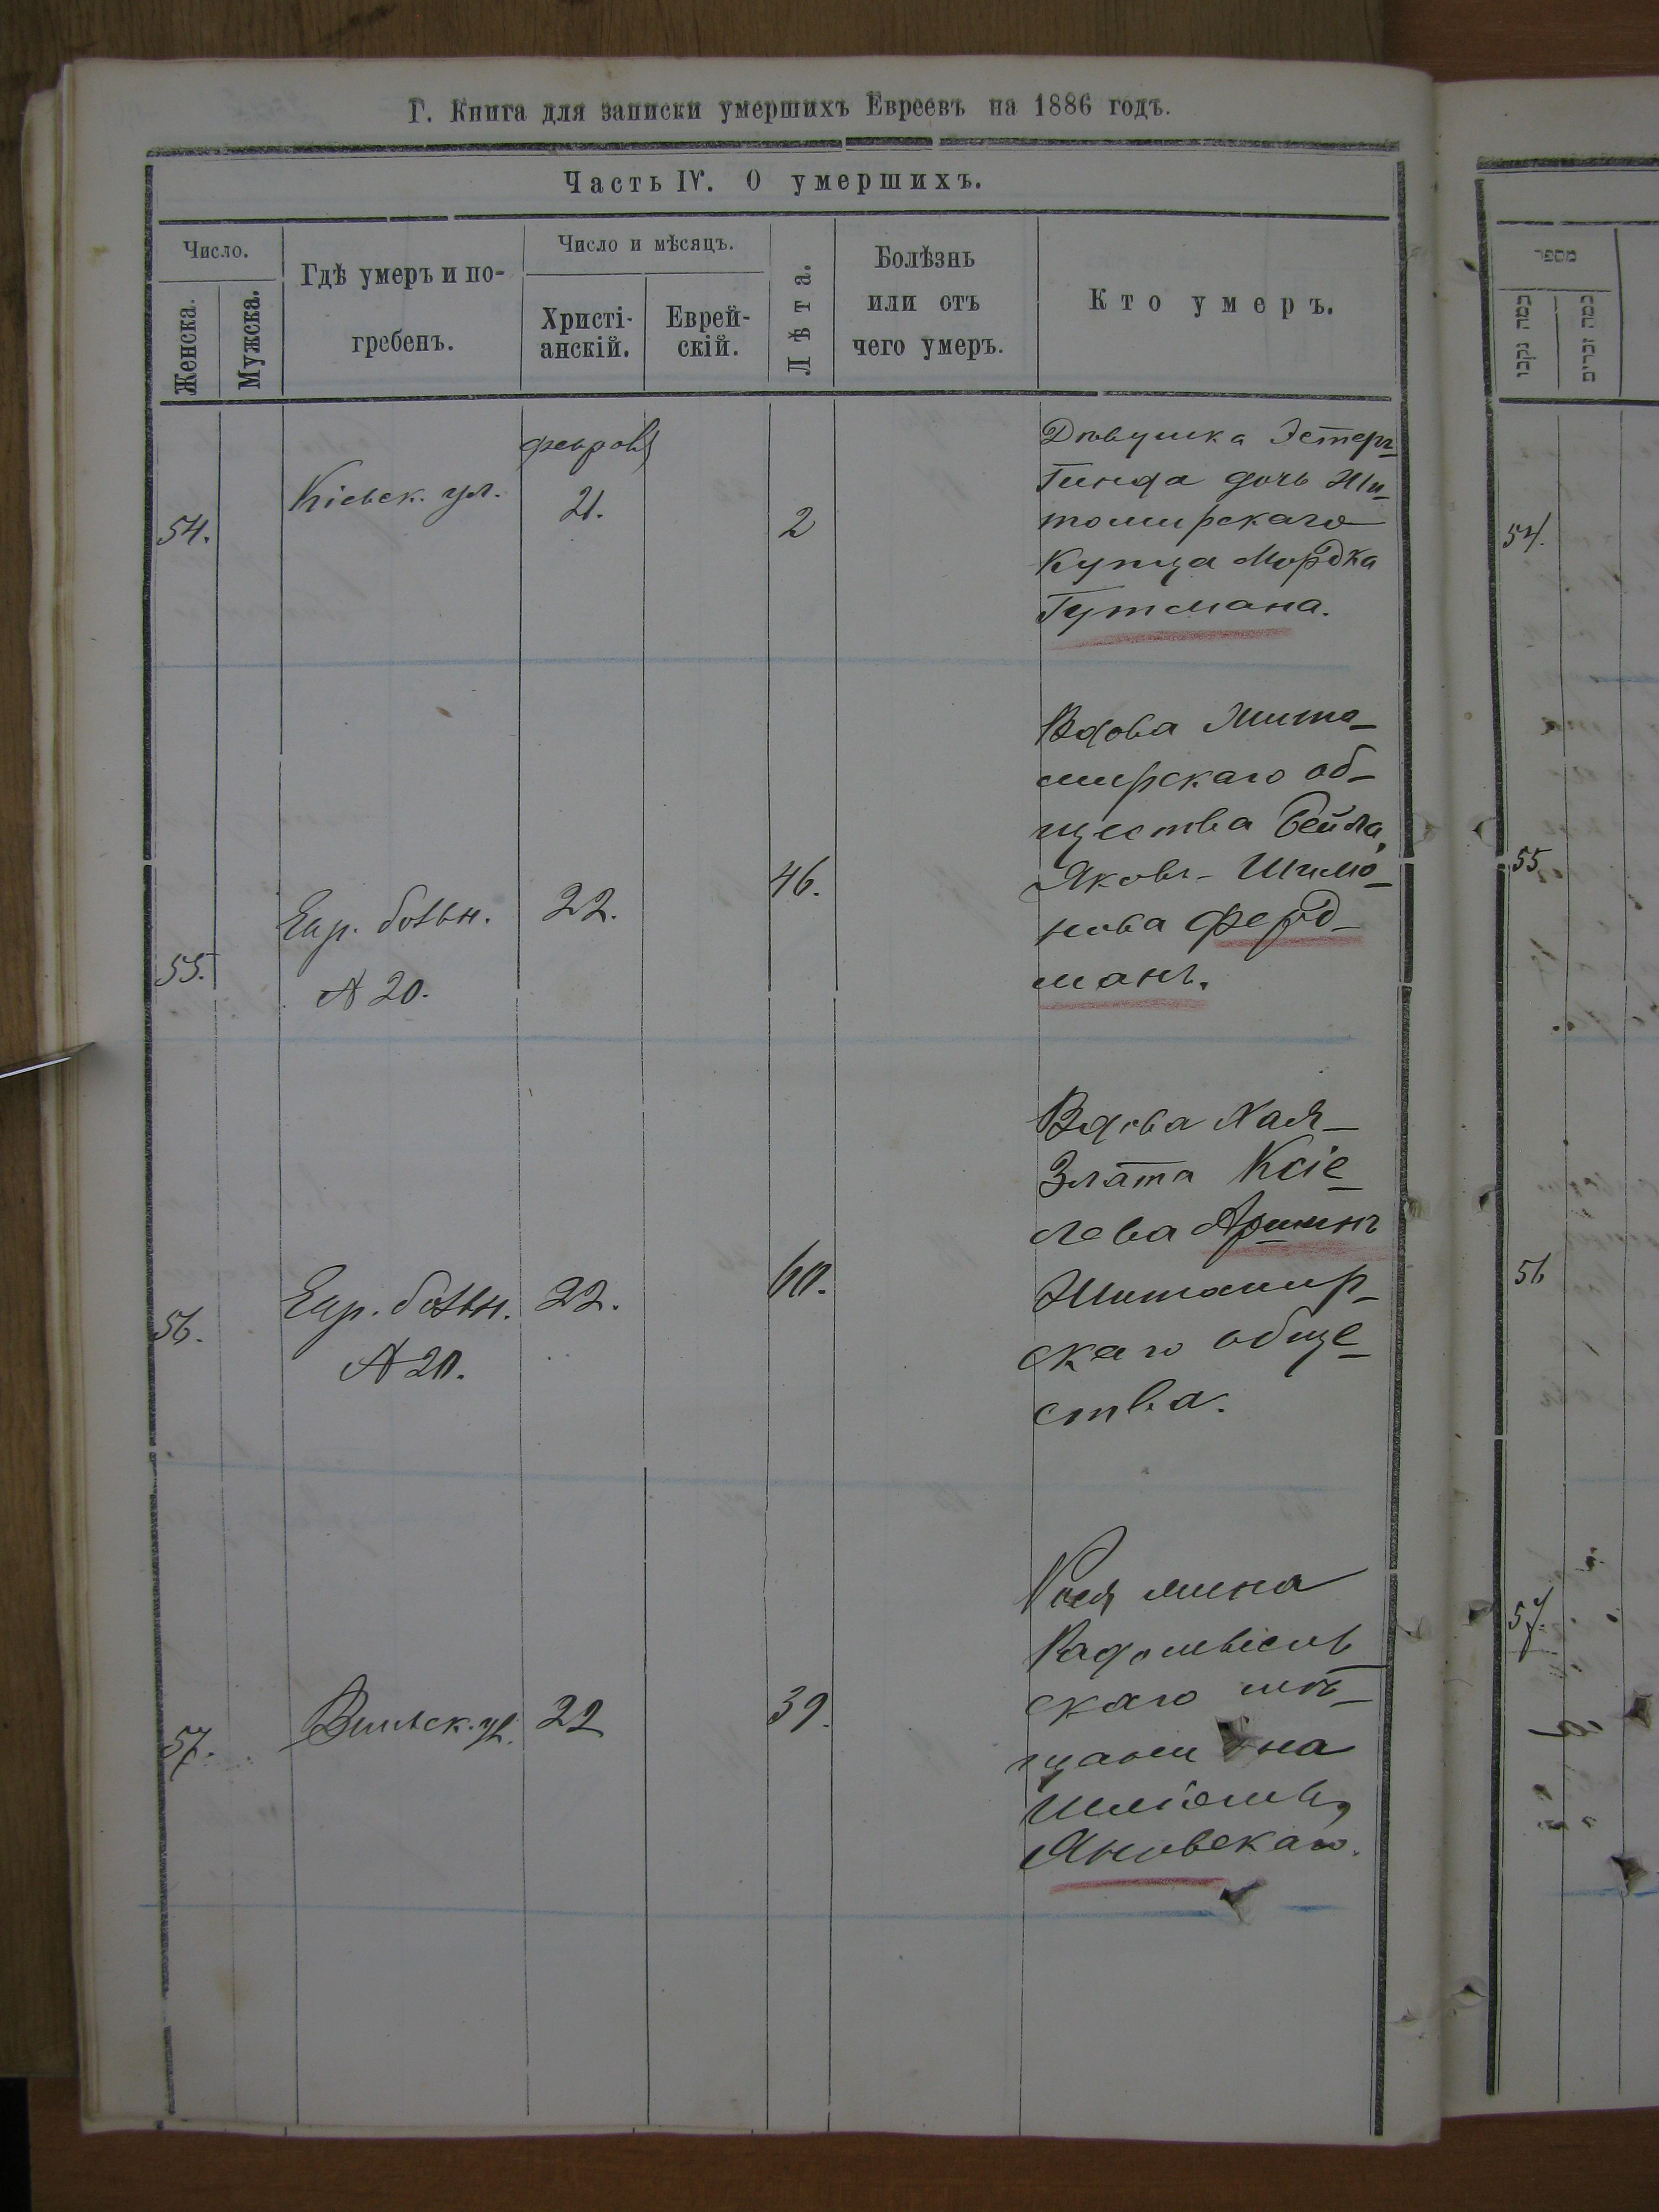 Г. Книга для записки умершихъ Евреевъ на 1886 годъ.
Часть IV. О умершихъ.
Число.
Женска.
Мужска.
Гдѣ умеръ и по-
гребенъ.
Число и мѣсяцъ.
Христі-
анскій.
Еврей-
скій.
Лѣта.
Болѣзнь
или отъ
чего умеръ.
Кто умеръ.
54.
Кіевск. ул.
21.
2
Дѣвушка Эстеръ
Гинда дочь Жи-
томирскаго
Купца Мордка
Гутмана.
55.
Евр. больн.
№ 20.
22.
46.
Вдова Жито-
мирскаго об-
щества Бейла
Яковъ-Шимо-
нова Ферд-
манъ.
56.
Евр. больн.
№ 20.
22.
60.
Вдова Хая-
Злата Ксіе-
лева
Житомир-
скаго обще-
ства.
57.
Вильск. ул.
22
39.
жена
скаго мѣ-
щанина
Яновскаго.
מספר
54.
55
56
57.